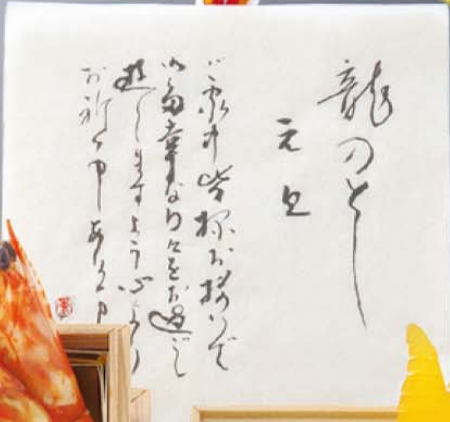 龍のとし
元旦
ご家中皆様お揃いで
御多幸な日々をお過ごし
遊しますよう心より
お祈り申しあげ